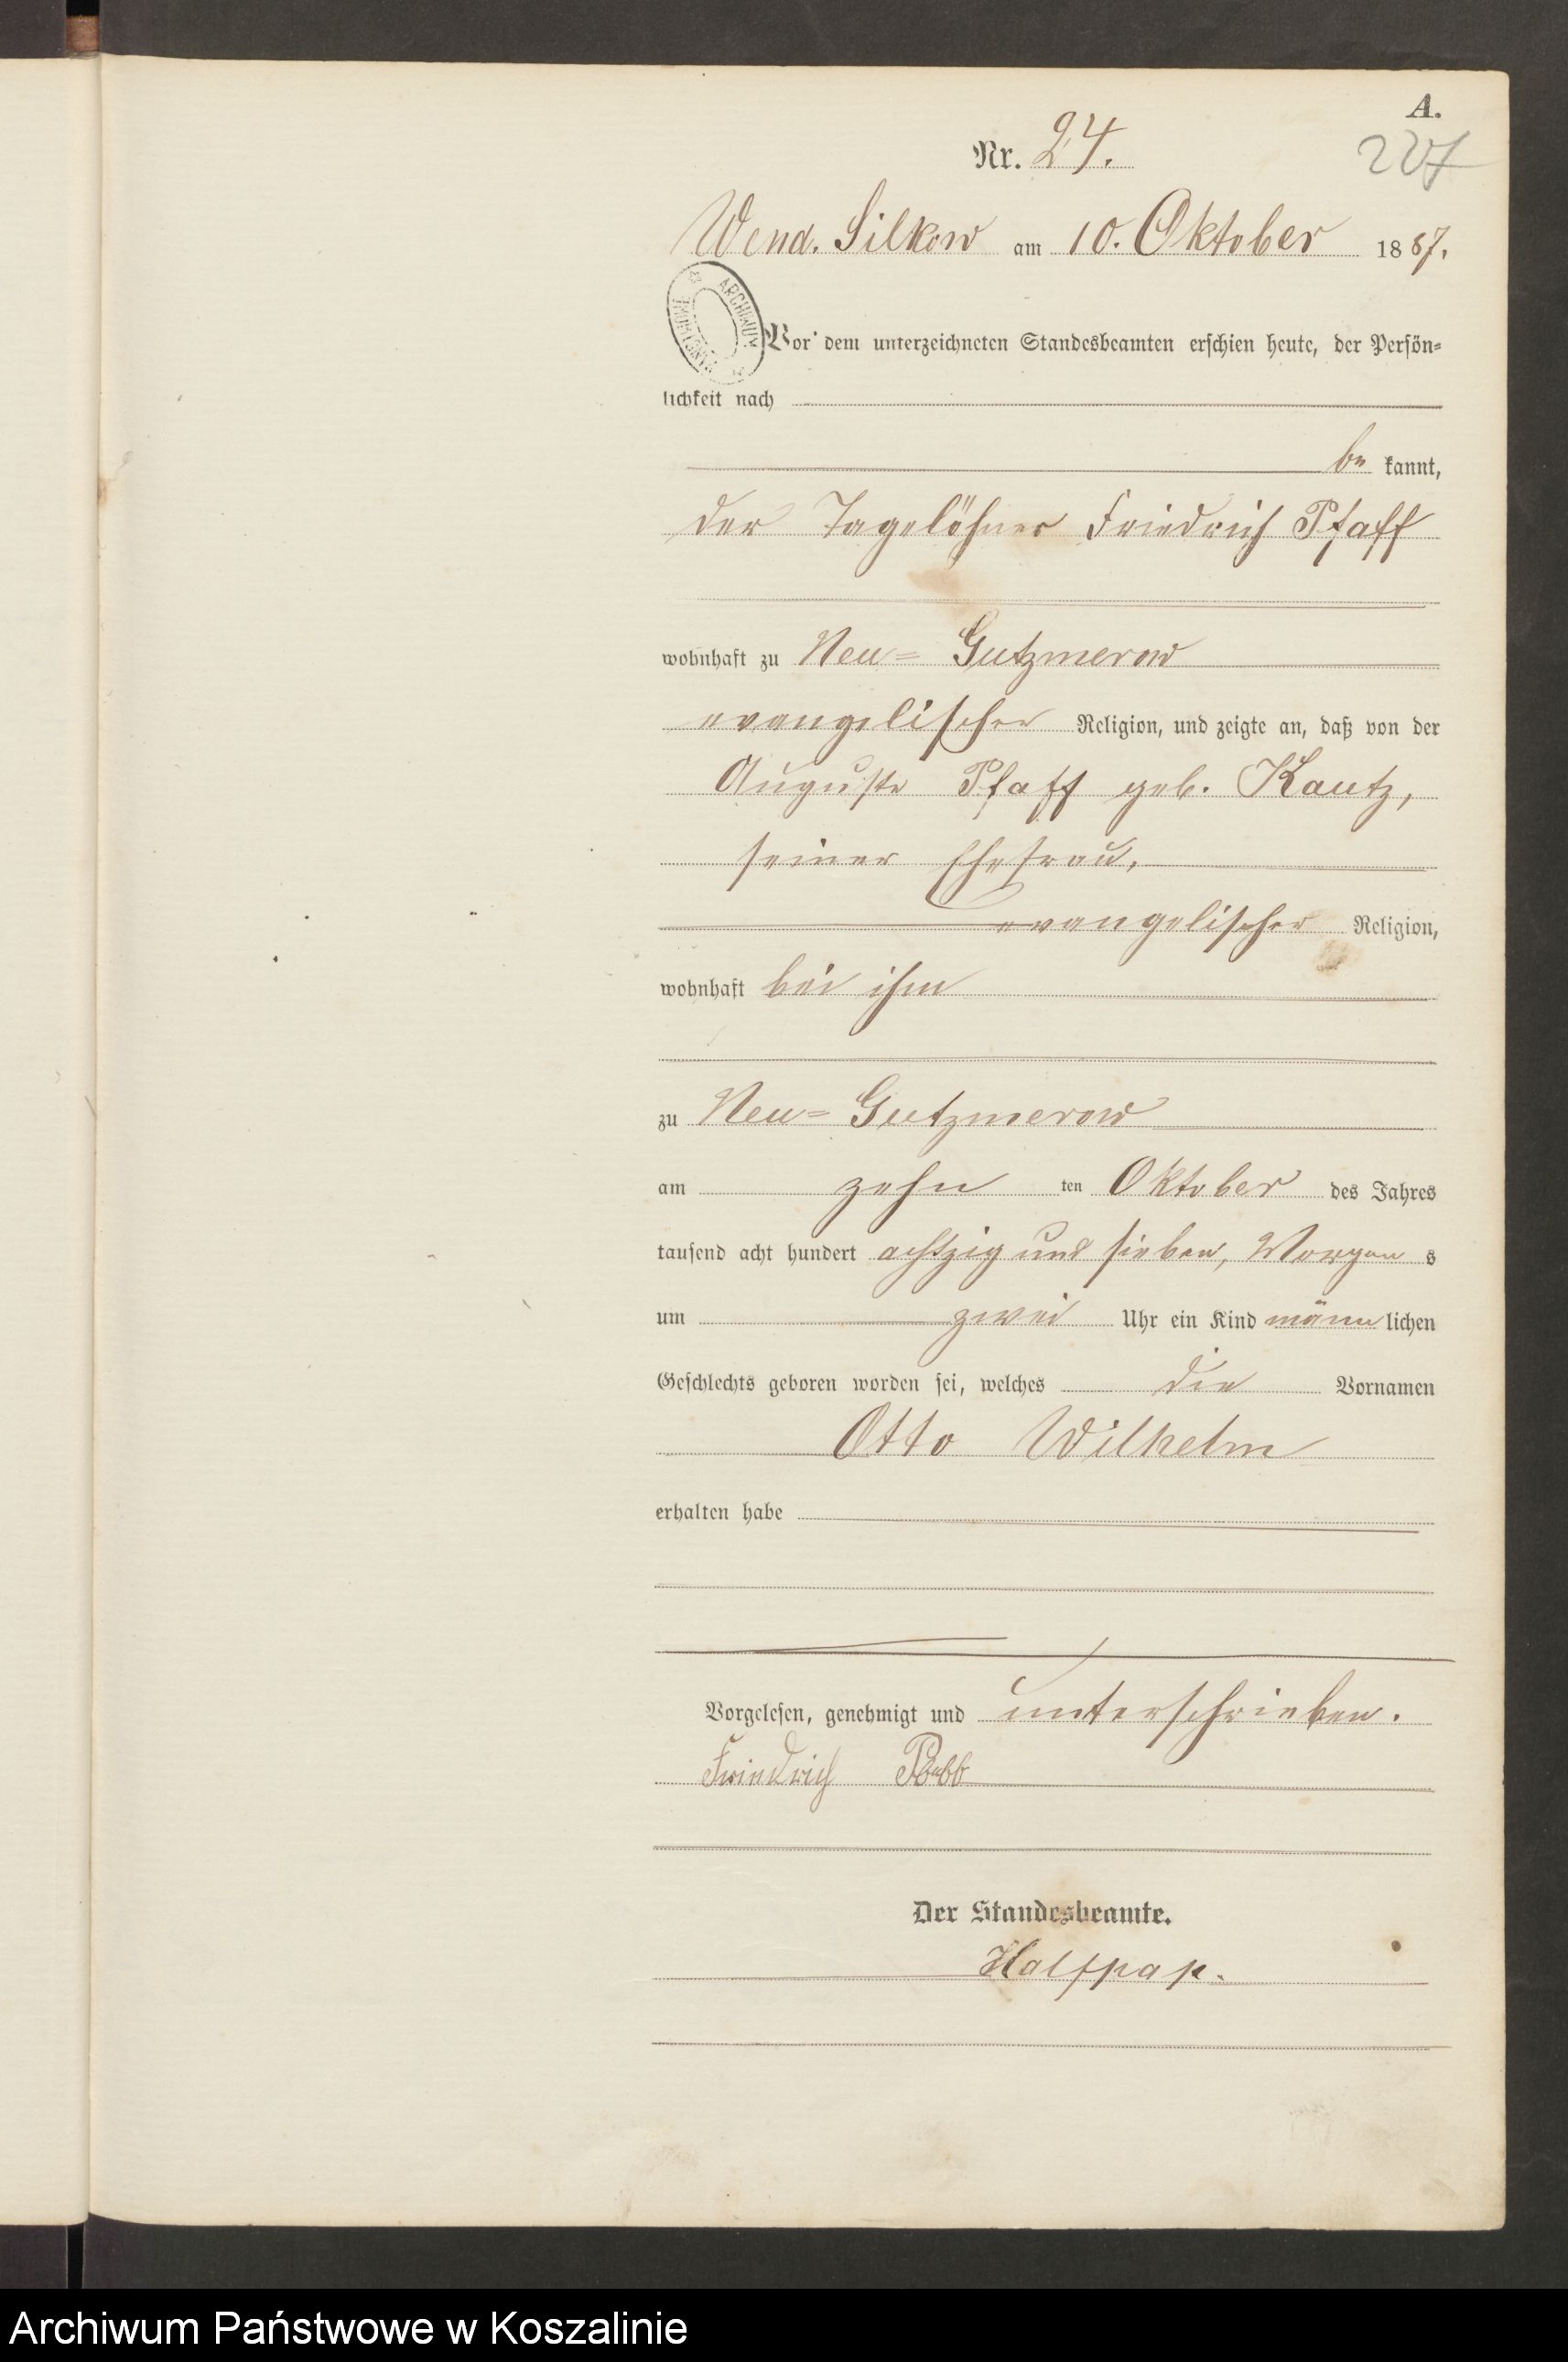 A.
Nr. 24.
227
Wend. Silkow am 10. Oktober 1887.
ARCHIWUM
Vor dem unterzeichneten Standesbeamten erschien heute, der Persön-
lichkeit nach
be kannt,
der Tagelöhner Friedrich Pfaff
wohnhaft zu Neu= Gutzmerow
evangelischer Religion, und zeigte an, daß von der
Auguste Pfaff geb. Kautz,
seiner Ehefrau,
evangelischer Religion,
wohnhaft bei ihm
zu Neu= Gutzmerow
am zehn ten Oktober des Jahres
tausend acht hundert achtzig und sieben, Morgen s
um zwei Uhr ein Kind männ lichen
Geschlechts geboren worden sei, welches die Vornamen
Otto Wilhelm
erhalten habe
Vorgelesen, genehmigt und unterschrieben.
Friedrich
Der Standesbeamte.
Halfpap.
Archiwum Państwowe w Koszalinie